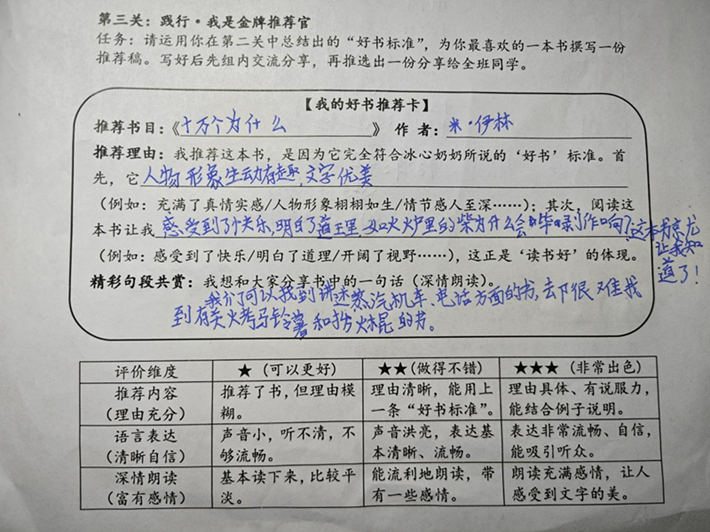 第三关：践行·我是金牌推荐官
任务：请运用你在第二关中总结出的“好书标准”，为你最喜欢的一本书撰写一份
推荐稿。写好后先组内交流分享，再推选出一份分享给全班同学。
【我的好书推荐卡】
推荐书目：《十万个为什么》 作者：米·伊林
推荐理由：我推荐这本书，是因为它完全符合冰心奶奶所说的‘好书’标准。首
先，它人物形象生动有趣，文字优美
（例如：充满了真情实感/人物形象栩栩如生/情节感人至深……）；其次，阅读这
本书让我感受到了快乐，明白了道理，如火炉里的柴为什么会哔剥作响？这本书
让我知
道了！
（例如：感受到了快乐/明白了道理/开阔了视野……），这正是‘读书好’的体现。
精彩句段共赏：我想和大家分享书中的一句话（深情朗读）。
我们可以找到讲述蒸汽机车、电话方面的书，却很难找
到有关火烤马铃薯和拨火棍的书。
评价维度 ★（可以更好） ★★（做得不错） ★★★（非常出色）
推荐内容 推荐了书，但理由模 理由清晰，能用上 理由具体、有说服力，
（理由充分） 糊。 一条“好书标准”。 能结合例子说明。
语言表达 声音小，听不清，不 声音洪亮，表达基 表达非常流畅、自信，
（清晰自信） 够流畅。 本清晰、流畅。 能吸引听众。
深情朗读 基本读下来，比较平 能流利地朗读，带 朗读充满感情，让人
（富有感情） 淡。 有一些感情。 感受到文字的美。